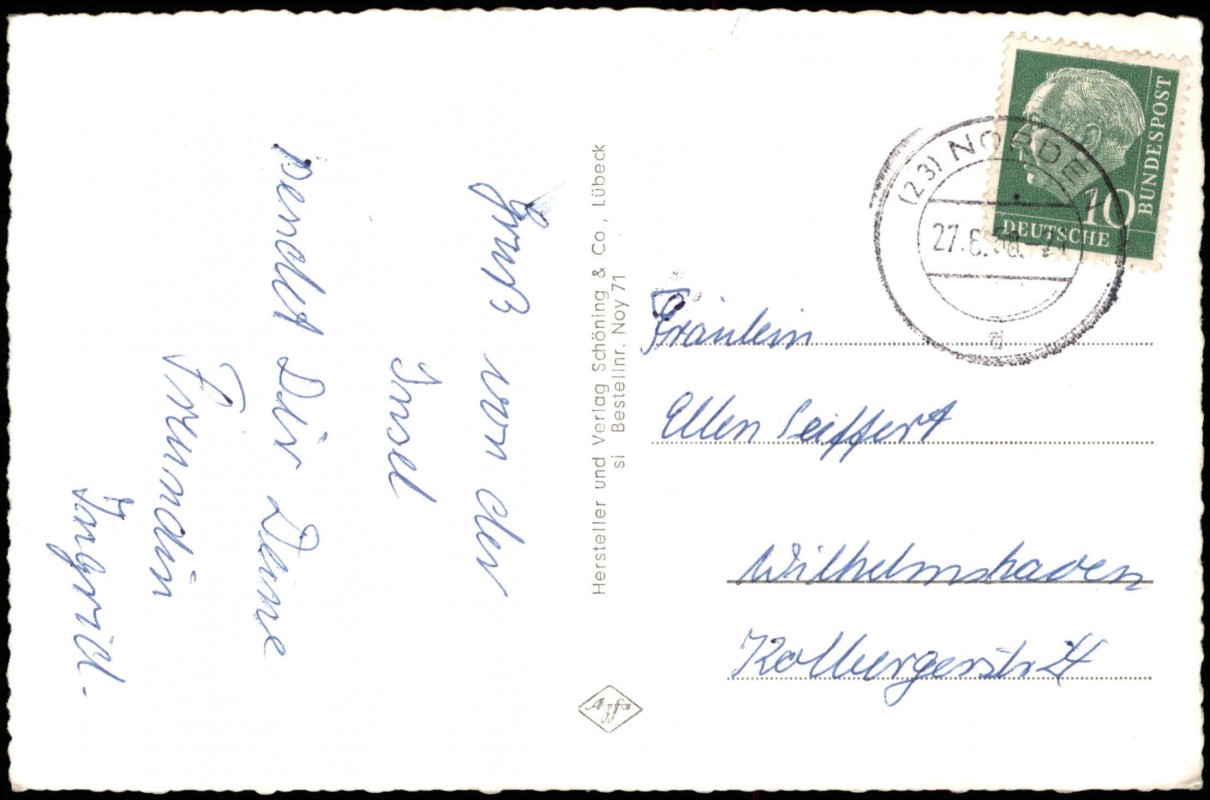 Gruß von der
Insel
sendet Dir Deine
Freundin
Ingrid.
Hersteller und Verlag Schöning & Co., Lübeck
si Bestellnr. Noy 71
Agfa
10
DEUTSCHE
BUNDESPOST
(23) NORDEN
a
Fräulein
Ellen Seiffert
Wilhelmshaven
Kolbergerstr